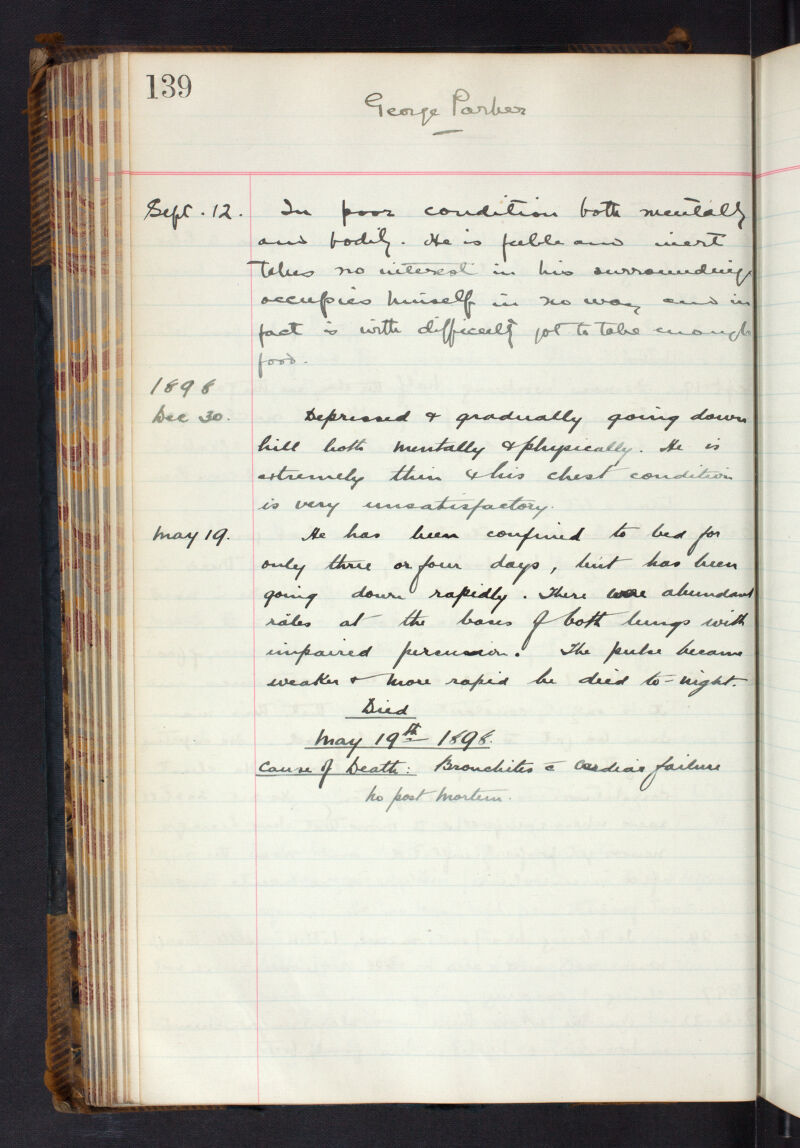 139
George Parker
Sept. 12. In poor condition both mentally
and bodily. He is feeble and inert
takes no interest in his surroundings
occupies himself in no way and in
fact is with difficulty got to take enough
food.
1898
Dec 30. Depressed & gradually going down
hill both mentally & physically. He is
extremely thin & his chest condition
is very unsatisfactory.
May 19. He has been confined to bed for
only three or four days, but has been
going down rapidly. There were abundant
râles at the bases of both lungs with
impaired percussion. The pulse became
weaker & more rapid he died to-night.
Died
May 19th 1898.
Cause of Death: Bronchitis c̄ Cardiac failure
No post mortem.